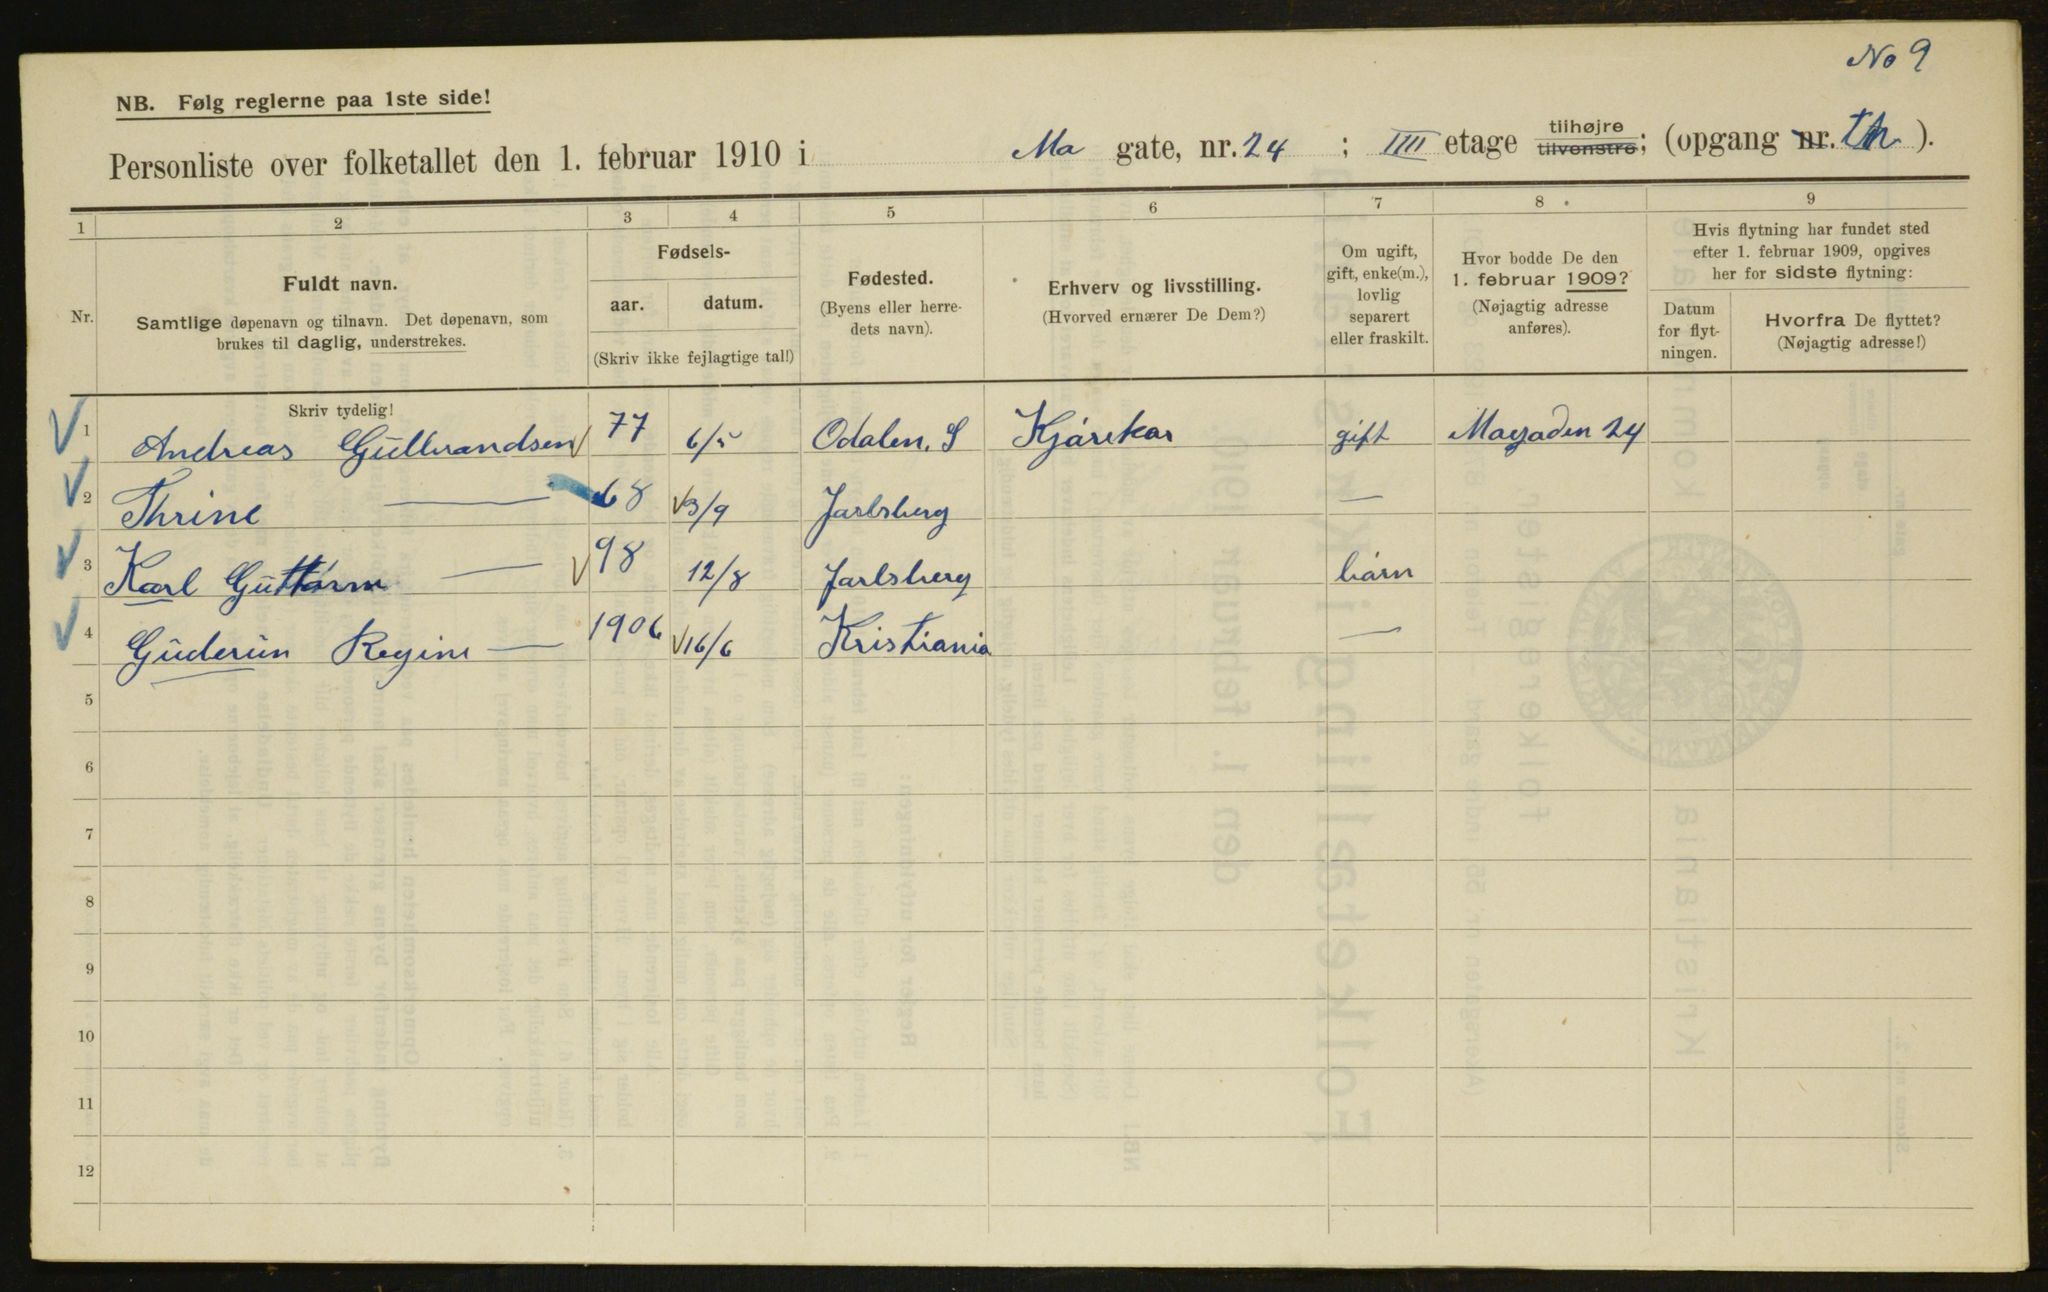 No 9
NB. Følg reglerne paa 1ste side!
Personliste over folketallet den 1. februar 1910 i Ma gate, nr. 24 ; IIII etage tilhøjre tilvenstre; (opgang nr. th ).
1 2 3 4 5 6 7 8 9
Nr.
Fuldt navn.
Samtlige døpenavn og tilnavn. Det døpenavn, som
brukes til daglig, understrekes.
Fødsels-
aar. datum.
(Skriv ikke fejlagtige tal!)
Fødested.
(Byens eller herre-
dets navn).
Erhverv og livsstilling.
(Hvorved ernærer De Dem?)
Om ugift,
gift, enke(m.),
lovlig
separert
eller fraskilt.
Hvor bodde De den
1. februar 1909?
(Nøjagtig adresse
anføres).
Hvis flytning har fundet sted
efter 1. februar 1909, opgives
her for sidste flytning:
Datum
for flyt-
ningen.
Hvorfra De flyttet?
(Nøjagtig adresse!)
Skriv tydelig!
1 Andreas Gullbrandsen 77 6/5 Odalen. S Kjørekar gift Magaden 24
2 Thrine — 68 3/9 Jarlsberg —
3 Karl Guttorm — 98 12/8 Jarlsberg barn
4 Guderun Regine — 1906 16/6 Kristiania —
5
6
7
8
9
10
11
12